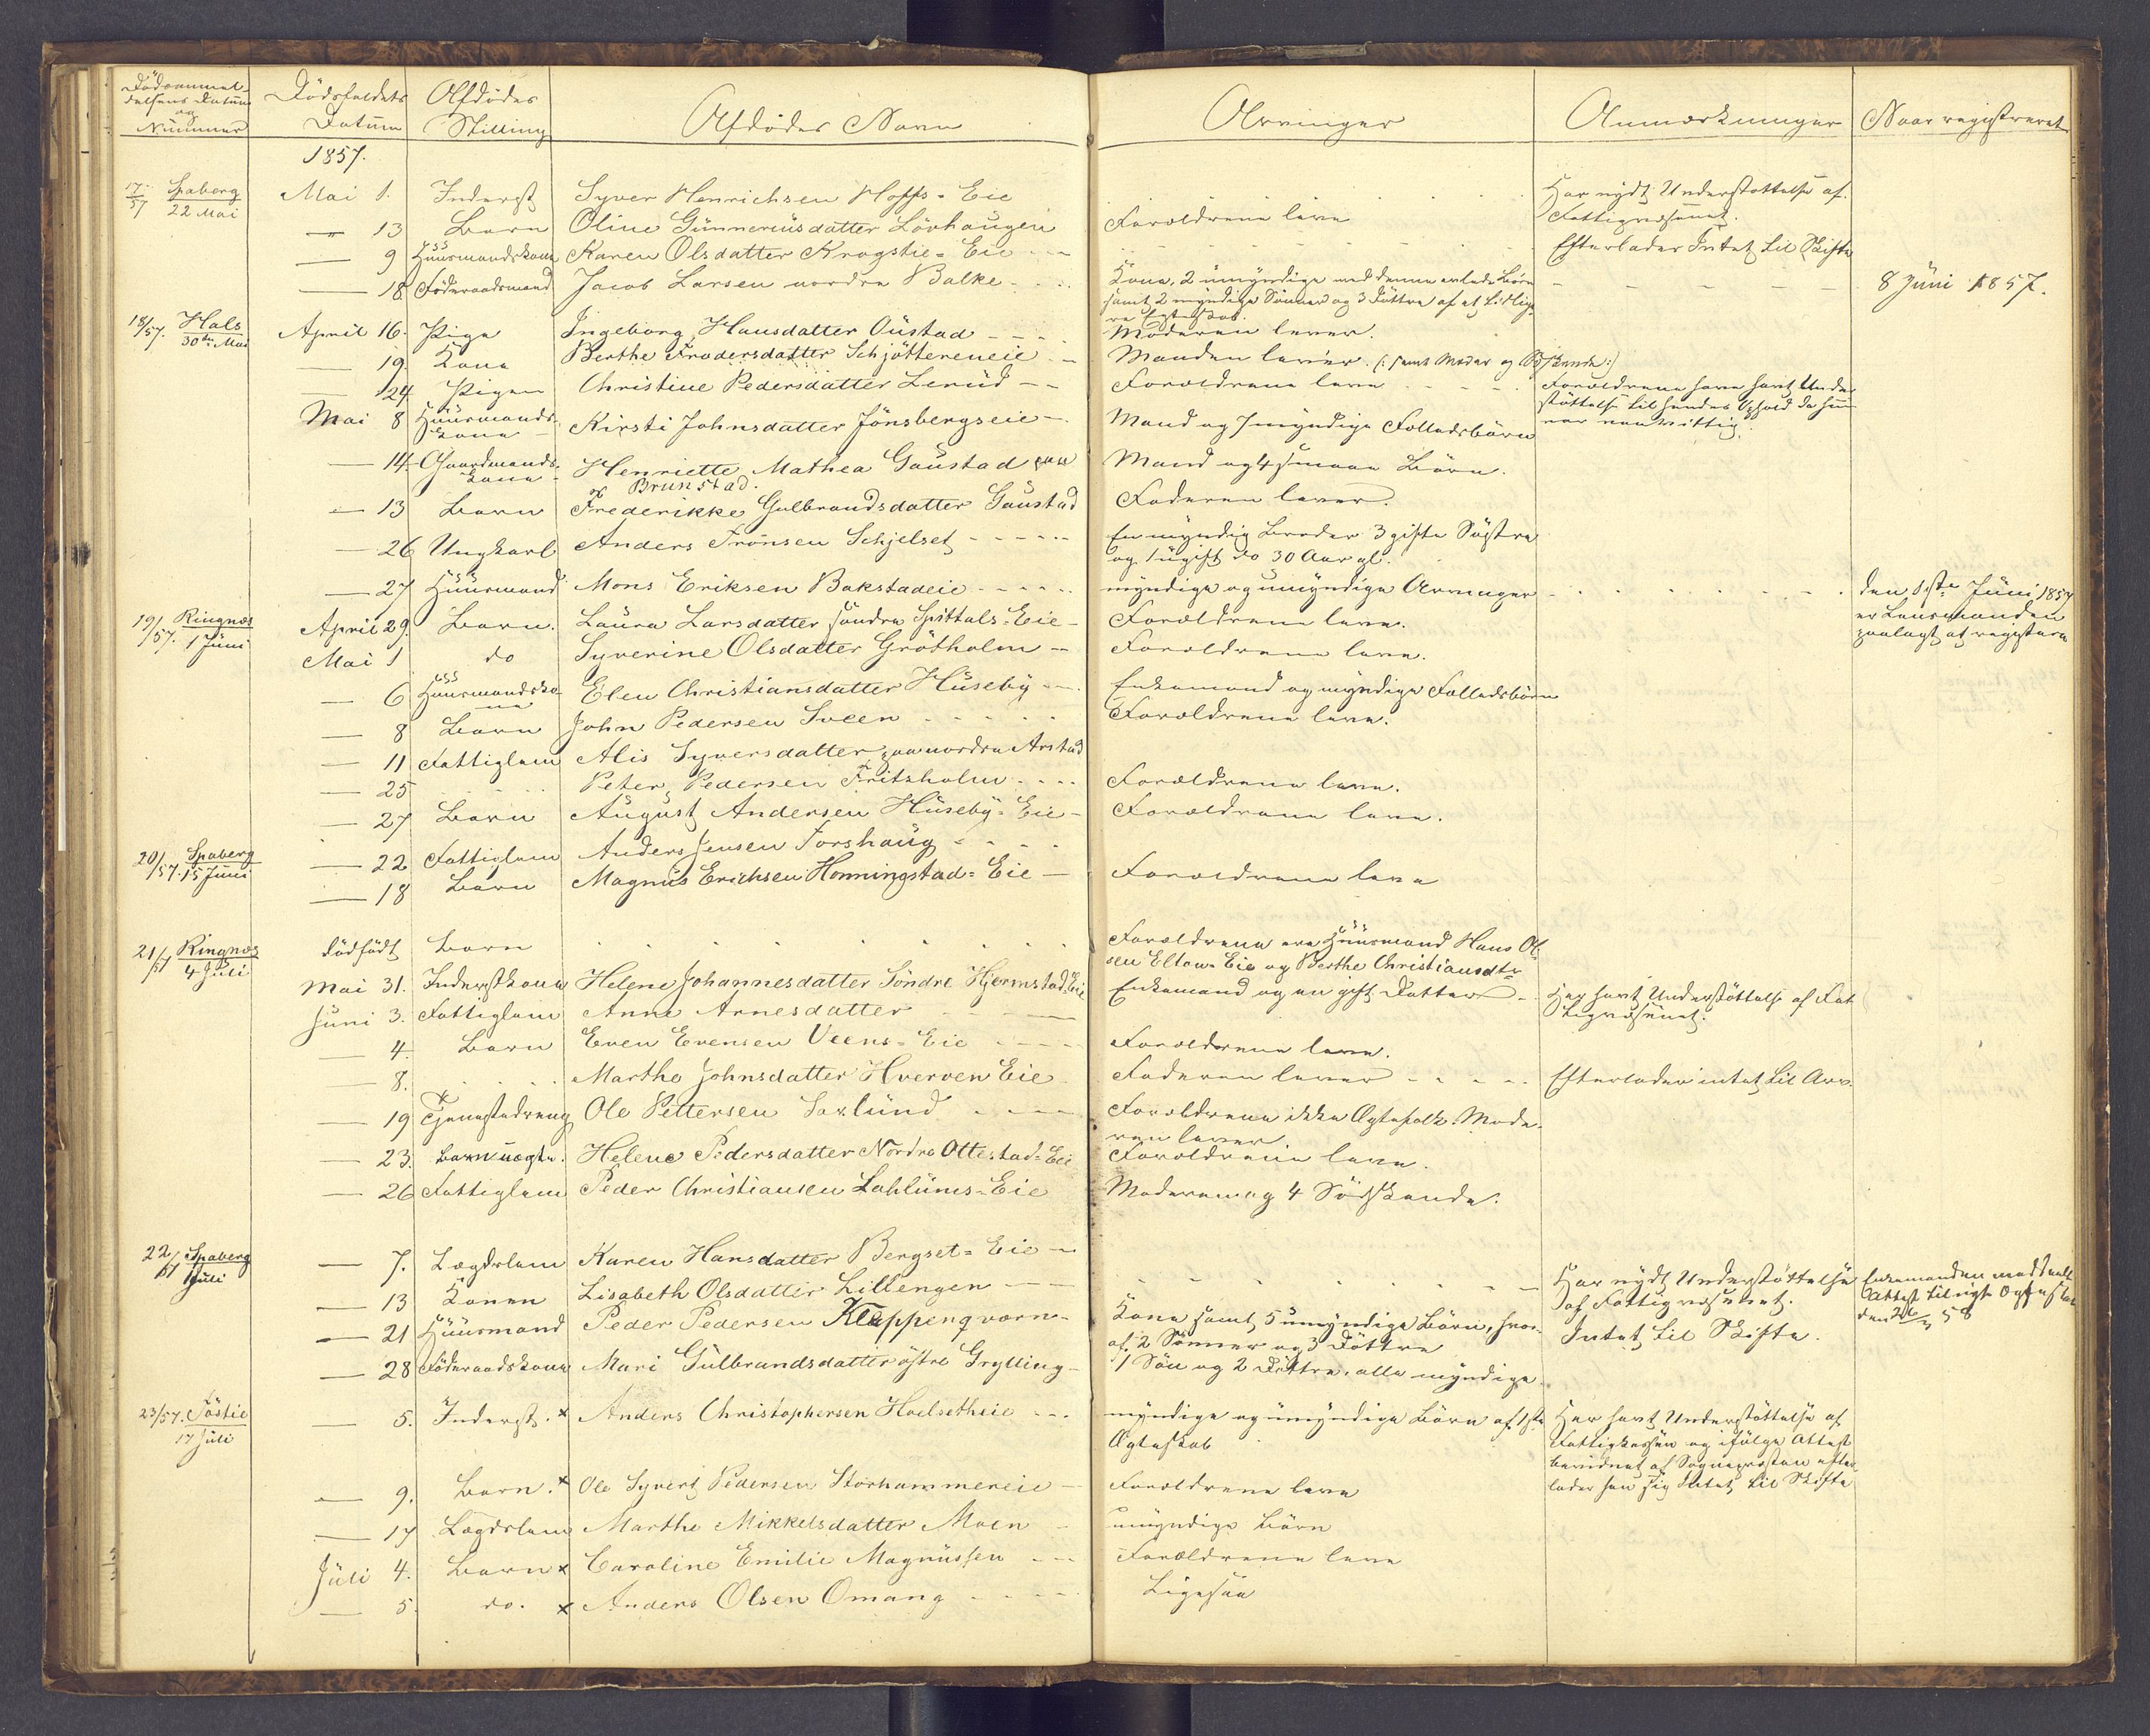 Dödsanmel-
delsens Datum
og
Nummer
Dödsfaldets
Datum
Afdödes
Stilling
Afdödes Navn
Arvinger
Anmærkninger
Naar registreret
1857.
17/57 Spaberg 22 Mai
Mai 1. Inderst Syver Henrichsen Hoffs-Eie
Har nydt Understøttelse af
Fattigvæsenet.
— 13 Barn Oline Gunneriusdatter Lövhaugen Forældrene leve
— 9 Huusmandskone Karen Olsdatter Krogstie-Eie Efterlader Intet til Skifte
— 18 Föderaadsmand Jacob Larsen nordre Balke Kone, 2 umyndige med denne avlede Börn
samt 2 myndige Sönner og 3 Döttre af et tidlige-
re Egteskab.
8 Juni 1857.
18/57. Hals 30te Mai
April 16. Pige Ingeborg Hansdatter Oustad Moderen lever.
— 19. Kone Berthe Frodersdatter Schjöttereneie Manden lever. (: samt Moder og Södskende:)
— 24 Pigen Christine Pedersdatter Lerud Forældrene leve Forældrene have havt Under-
støttelse til hendes Ophold da hun
var vanvittig.
Mai 8 Huusmands-
kone Kirsti Johnsdatter Jönsbergseie Mand og 7 myndige Fælledsbörn
— 14 Gaardmands-
kone Henriette Mathea Gaustad paa
Brunstad. Mand og 4 smaa Börn.
— 13 Barn Frederikke Gulbrandsdatter Gaustad Faderen lever.
— 26 Ungkarl Anders Trönsen Schjelset En myndig Broder 3 gifte Söstre
og 1 ugift do 30 Aar gl.
— 27 Huusmand Mons Eriksen Bakstadeie myndige og umyndige Arvinger
den 1ste Juni 1857
er Lensmanden
paalagt at registrere
19/57. Ringnæs 1 Juni
April 29. Barn. Laura Larsdatter söndre Spittals-Eie Forældrene leve.
Mai 1 do Syverine Olsdatter Grötholm Forældrene leve.
— 6 Huusmandsko-
ne Elen Christiansdatter Huseby Enkemand og myndige Fælledsbörn
— 8 Barn John Pedersen Sveen Forældrene leve.
— 11 Fattiglem Alis Syversdatter paa nordre Arstad
— 25 Peter Pedersen Fritsholm Forældrene leve.
— 27 Barn August Andersen Huseby-Eie Forældrene leve.
20/57. Spaberg 15 Juni
— 22 Fattiglem Anders Jensen Torshaug
— 18 Barn Magnus Erichsen Honningstad-Eie Forældrene leve
21/57 Ringnæs 4 Juli
dödfödt Barn Forældrene ere Huusmand Hans Ol-
sen Elton-Eie og Berthe Christiansdtr
Mai 31. Inderstkone Helene Johannesdatter Söndre Hjermstad Eie Enkemand og en gift Datter Har havt Understöttelse af Fat
tigvæsenet.
Juni 3. Fattiglem Anne Arnesdatter
— 4. Barn Even Evensen Veens-Eie Forældrene leve.
— 8. Marthe Johnsdatter Hverven Eie Faderen lever Efterlader intet til Arv.
— 19 Tjenestedreng Ole Pettersen Saxlund Forældrene ikke Ægtefolk. Mode-
ren lever.
— 23. Barn uægte. Helene Pedersdatter Nordre Ottestad-Eie Forældrene leve.
— 26 Fattiglem Peder Christiansen Lahlums-Eie Moderen og 4 Södskende.
22/57 Spaberg 1 Juli
— 7. Lægdslem Karen Hansdatter Bergset-Eie
— 13 Konen Lisabeth Olsdatter Lillengen Har nydt Understöttelse
af Fattigvæsenet.
Enkemanden meddeelt
Attest til nyt Ægteskab
— 21 Huusmand Peder Pedersen Kleppengvorn Kone samt 5 umyndige Börn, hvor-
af 2 Sönner og 3 Döttre Intet til Skifte.
— 28 Föderaadskone Mari Gulbrandsdatter östre Grylling 1 Sön og 2 Döttre, alle myndige
23/57. Töstie 17 Juli
— 5. Inderst. x Anders Christophersen Hoelsetheie myndige og umyndige Börn af 1ste
Ægteskab
Har havt Understöttelse af
Fattigkassen og ifölge Attest
bevidnet af Sognepresten efter-
lader han sig Intet til Skifte
— 9. Barn. x Ole Syvert Pedersen Storhammereie Forældrene leve
— 17 Lægdslem Marthe Mikkelsdatter Moen umyndige Börn
Juli 4. Barn x Caroline Emilie Magnussen Forældrene leve
— 5. do. x Anders Olsen Omang Ligesaa